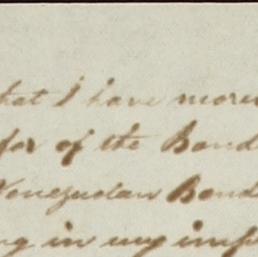 that I have more
for of the Bond
Venezuelan Bond
in my imp